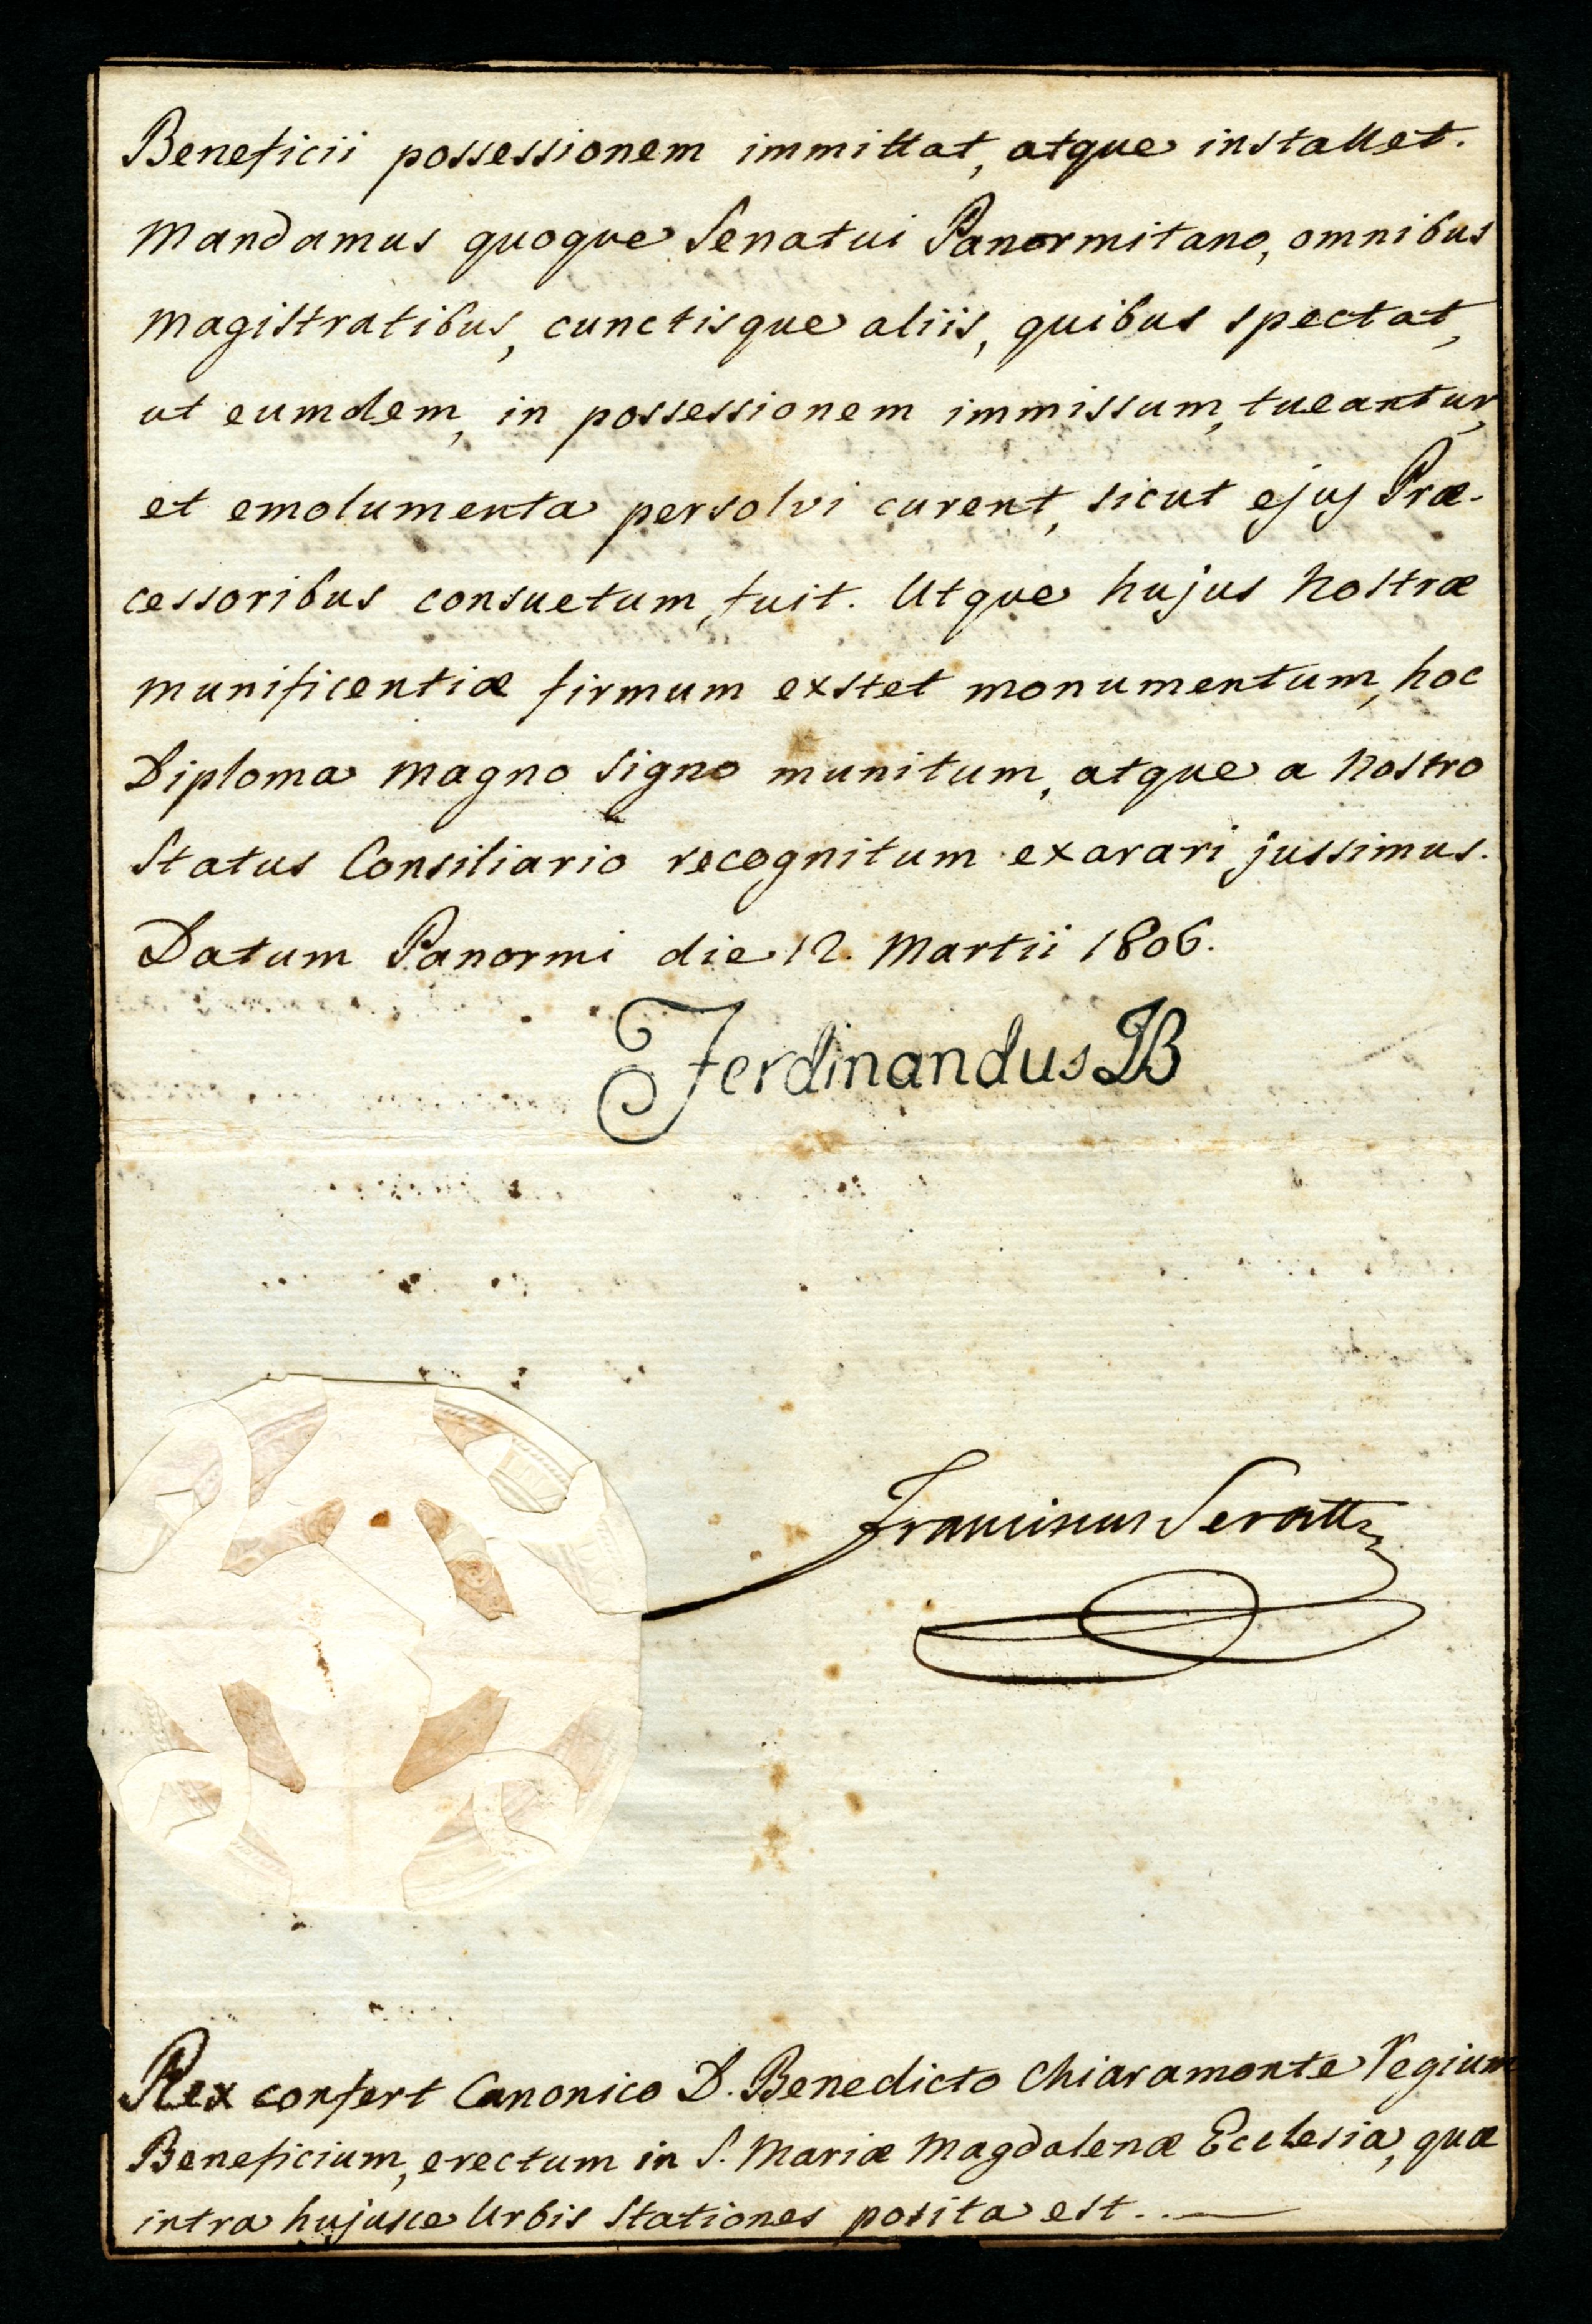 Beneficii possessionem immittat, atque installet.
Mandamus quoque Senatui Panormitano, omnibus
Magistratibus, cunctisque aliis, quibus spectat,
ut eumdem, in possessionem immissum, tueantur,
et emolumenta persolvi curent, sicut ejus Præ-
cessoribus consuetum, fuit. Utque hujus Nostræ
munificentiæ firmum exstet monumentum, hoc
Diploma magno signo munitum, atque a Nostro
Status Consiliario recognitum exarari jussimus.
Datum Panormi die 12. Martii 1806.
Ferdinandus B
Franciscus Seratti
Rex confert Canonico D. Benedicto Chiaramonte Regium
Beneficium, erectum in S. Mariæ Magdalenæ Ecclesia, quæ
intra hujusce Urbis Stationes posita est..—